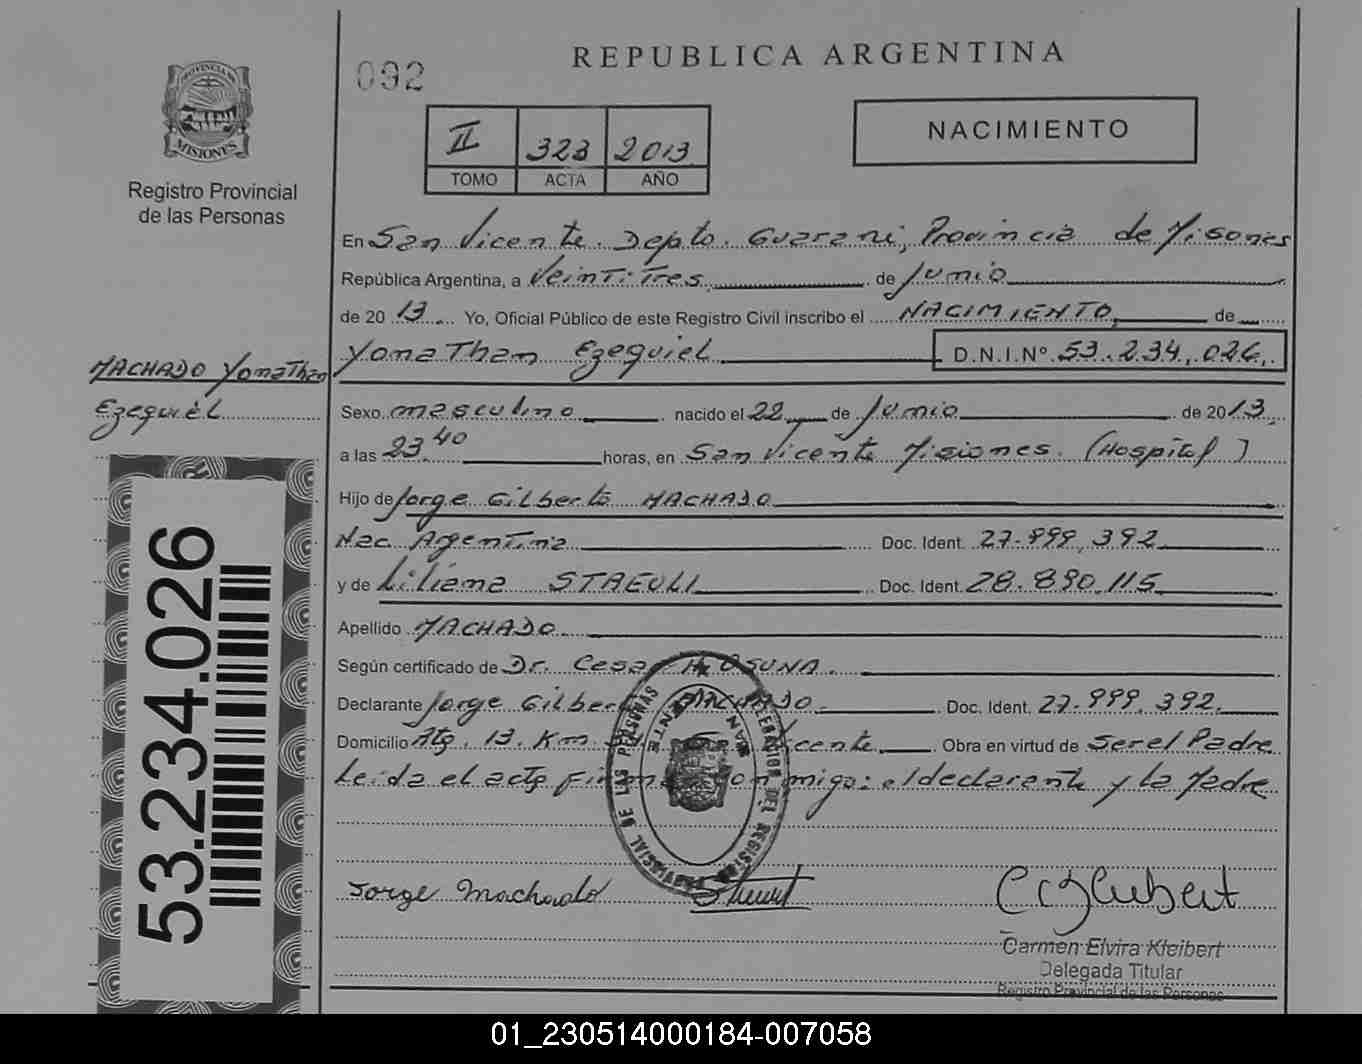 PROVINCIA DE
MISIONES
Registro Provincial
de las Personas
092
REPUBLICA ARGENTINA
II 323 2013
TOMO ACTA AÑO
NACIMIENTO
En San Vicente. Depto. Guarani, Provincia de Misones
República Argentina, a Veinti Tres de Junio
de 20 13. Yo, Oficial Público de este Registro Civil inscribo el NACIMIENTO de
Yonathan Ezequiel D.N.I.Nº 53.234.026.
MACHADO Yonathan
Ezequiel
Sexo masculino nacido el 22 de Junio de 2013
a las 23.40 horas, en San Vicente Misiones. (Hospital)
Hijo de Jorge Gilberto MACHADO
Nac. Argentina Doc. Ident. 27.999.392
y de Liliana STAEULI Doc. Ident. 28.890.115
Apellido MACHADO
Según certificado de Dr. Cesar H. OSUNA.
Declarante Jorge Gilberto MACHADO Doc. Ident. 27.999.392.
Domicilio Km Vicente Obra en virtud de ser el Padre
Leida el acta firman conmigo: el declarante y la Madre
PROVINCIAL DE LAS PERSONAS
DELEGACION DEL REGISTRO
SAN VICENTE
53.234.026
Jorge Machado
Carmen Elvira Kleibert
Delegada Titular
Registro Provincial de las Personas
01_230514000184-007058